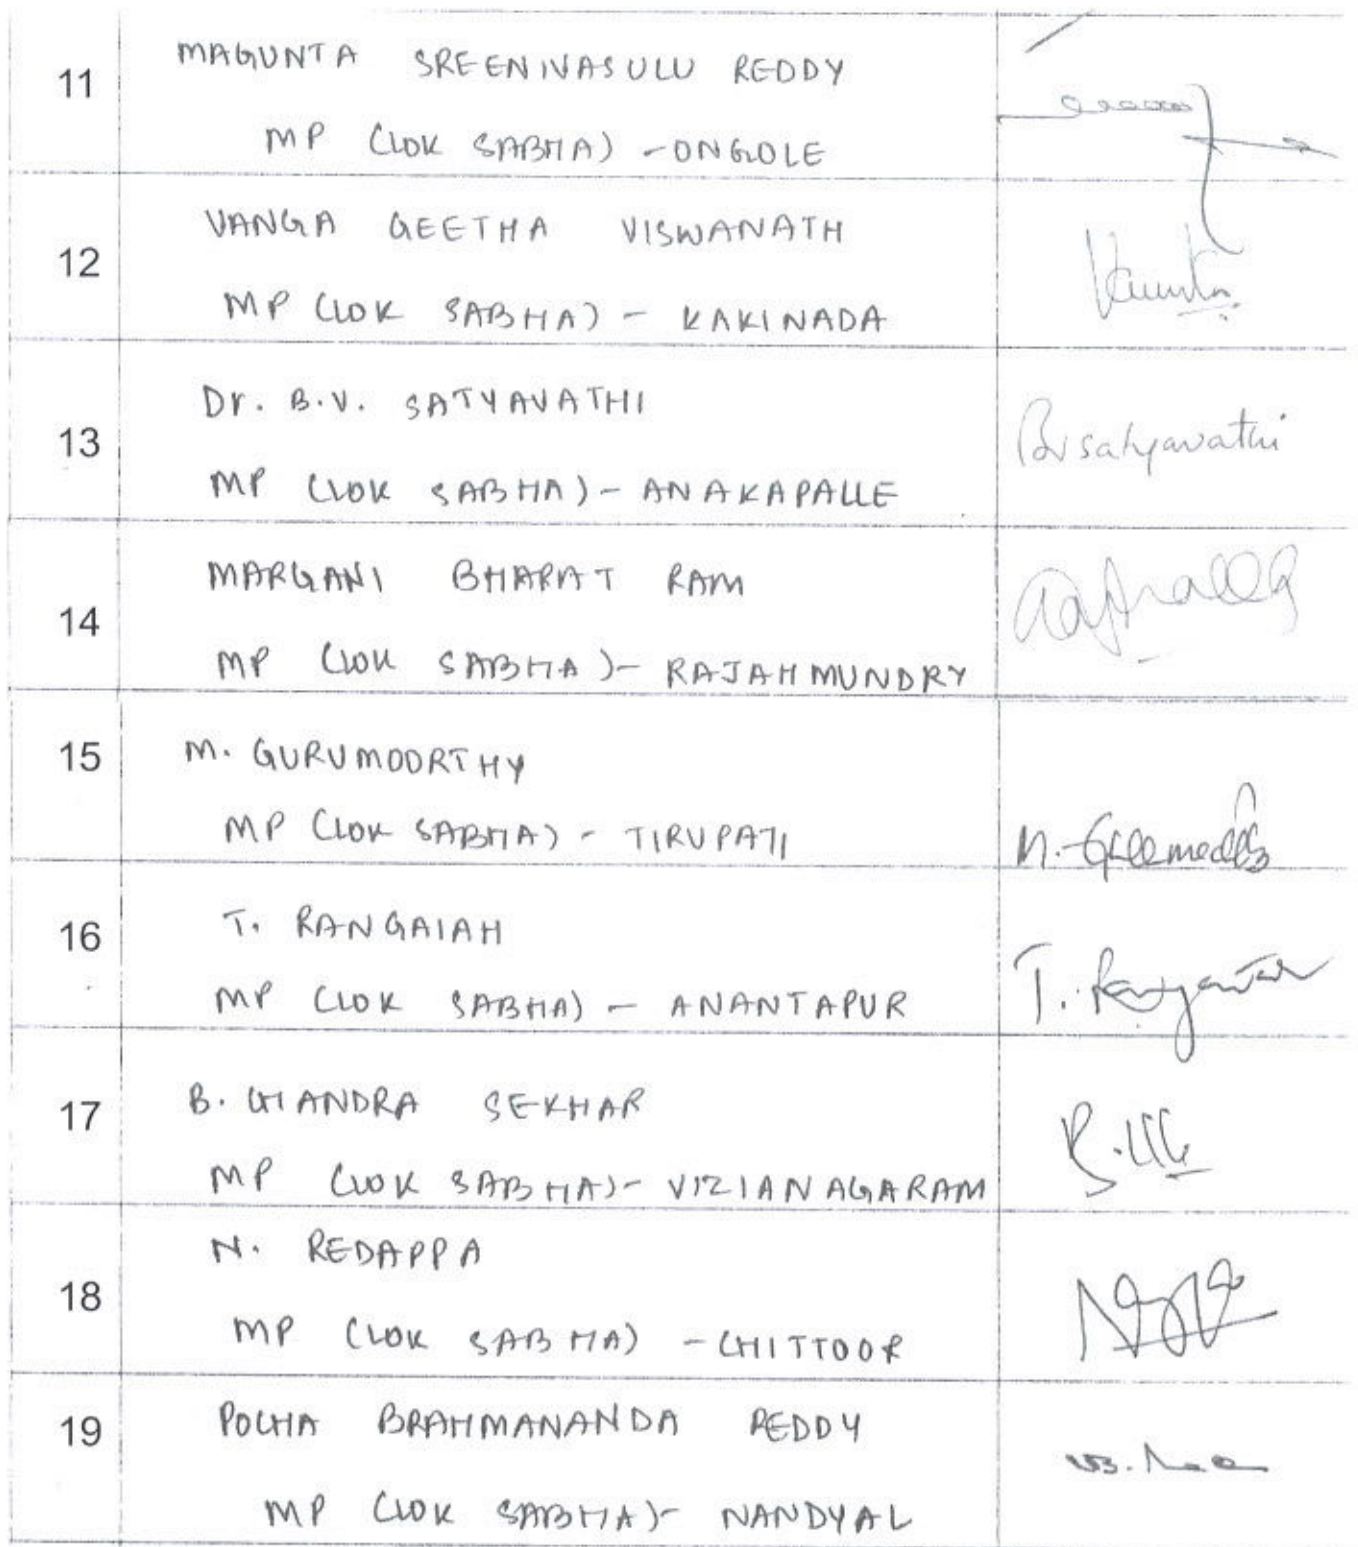 11
MAGUNTA SREENIVASULU REDDY
MP (LOK SABHA) - ONGOLE
12
VANGA GEETHA VISWANATH
MP (LOK SABHA) - KAKINADA
13
Dr. B.V. SATYAVATHI
MP (LOK SABHA) - ANAKAPALLE
Bv satyavathi
14
MARGANI BHARAT RAM
MP (LOK SABHA) - RAJAHMUNDRY
15
M. GURUMOORTHY
MP (LOK SABHA) - TIRUPATI
16
T. RANGAIAH
MP (LOK SABHA) - ANANTAPUR
17
B. CHANDRA SEKHAR
MP (LOK SABHA) - VIZIANAGARAM
18
N. REDAPPA
MP (LOK SABHA) - CHITTOOR
19
POCHA BRAHMANANDA REDDY
MP (LOK SABHA) - NANDYAL